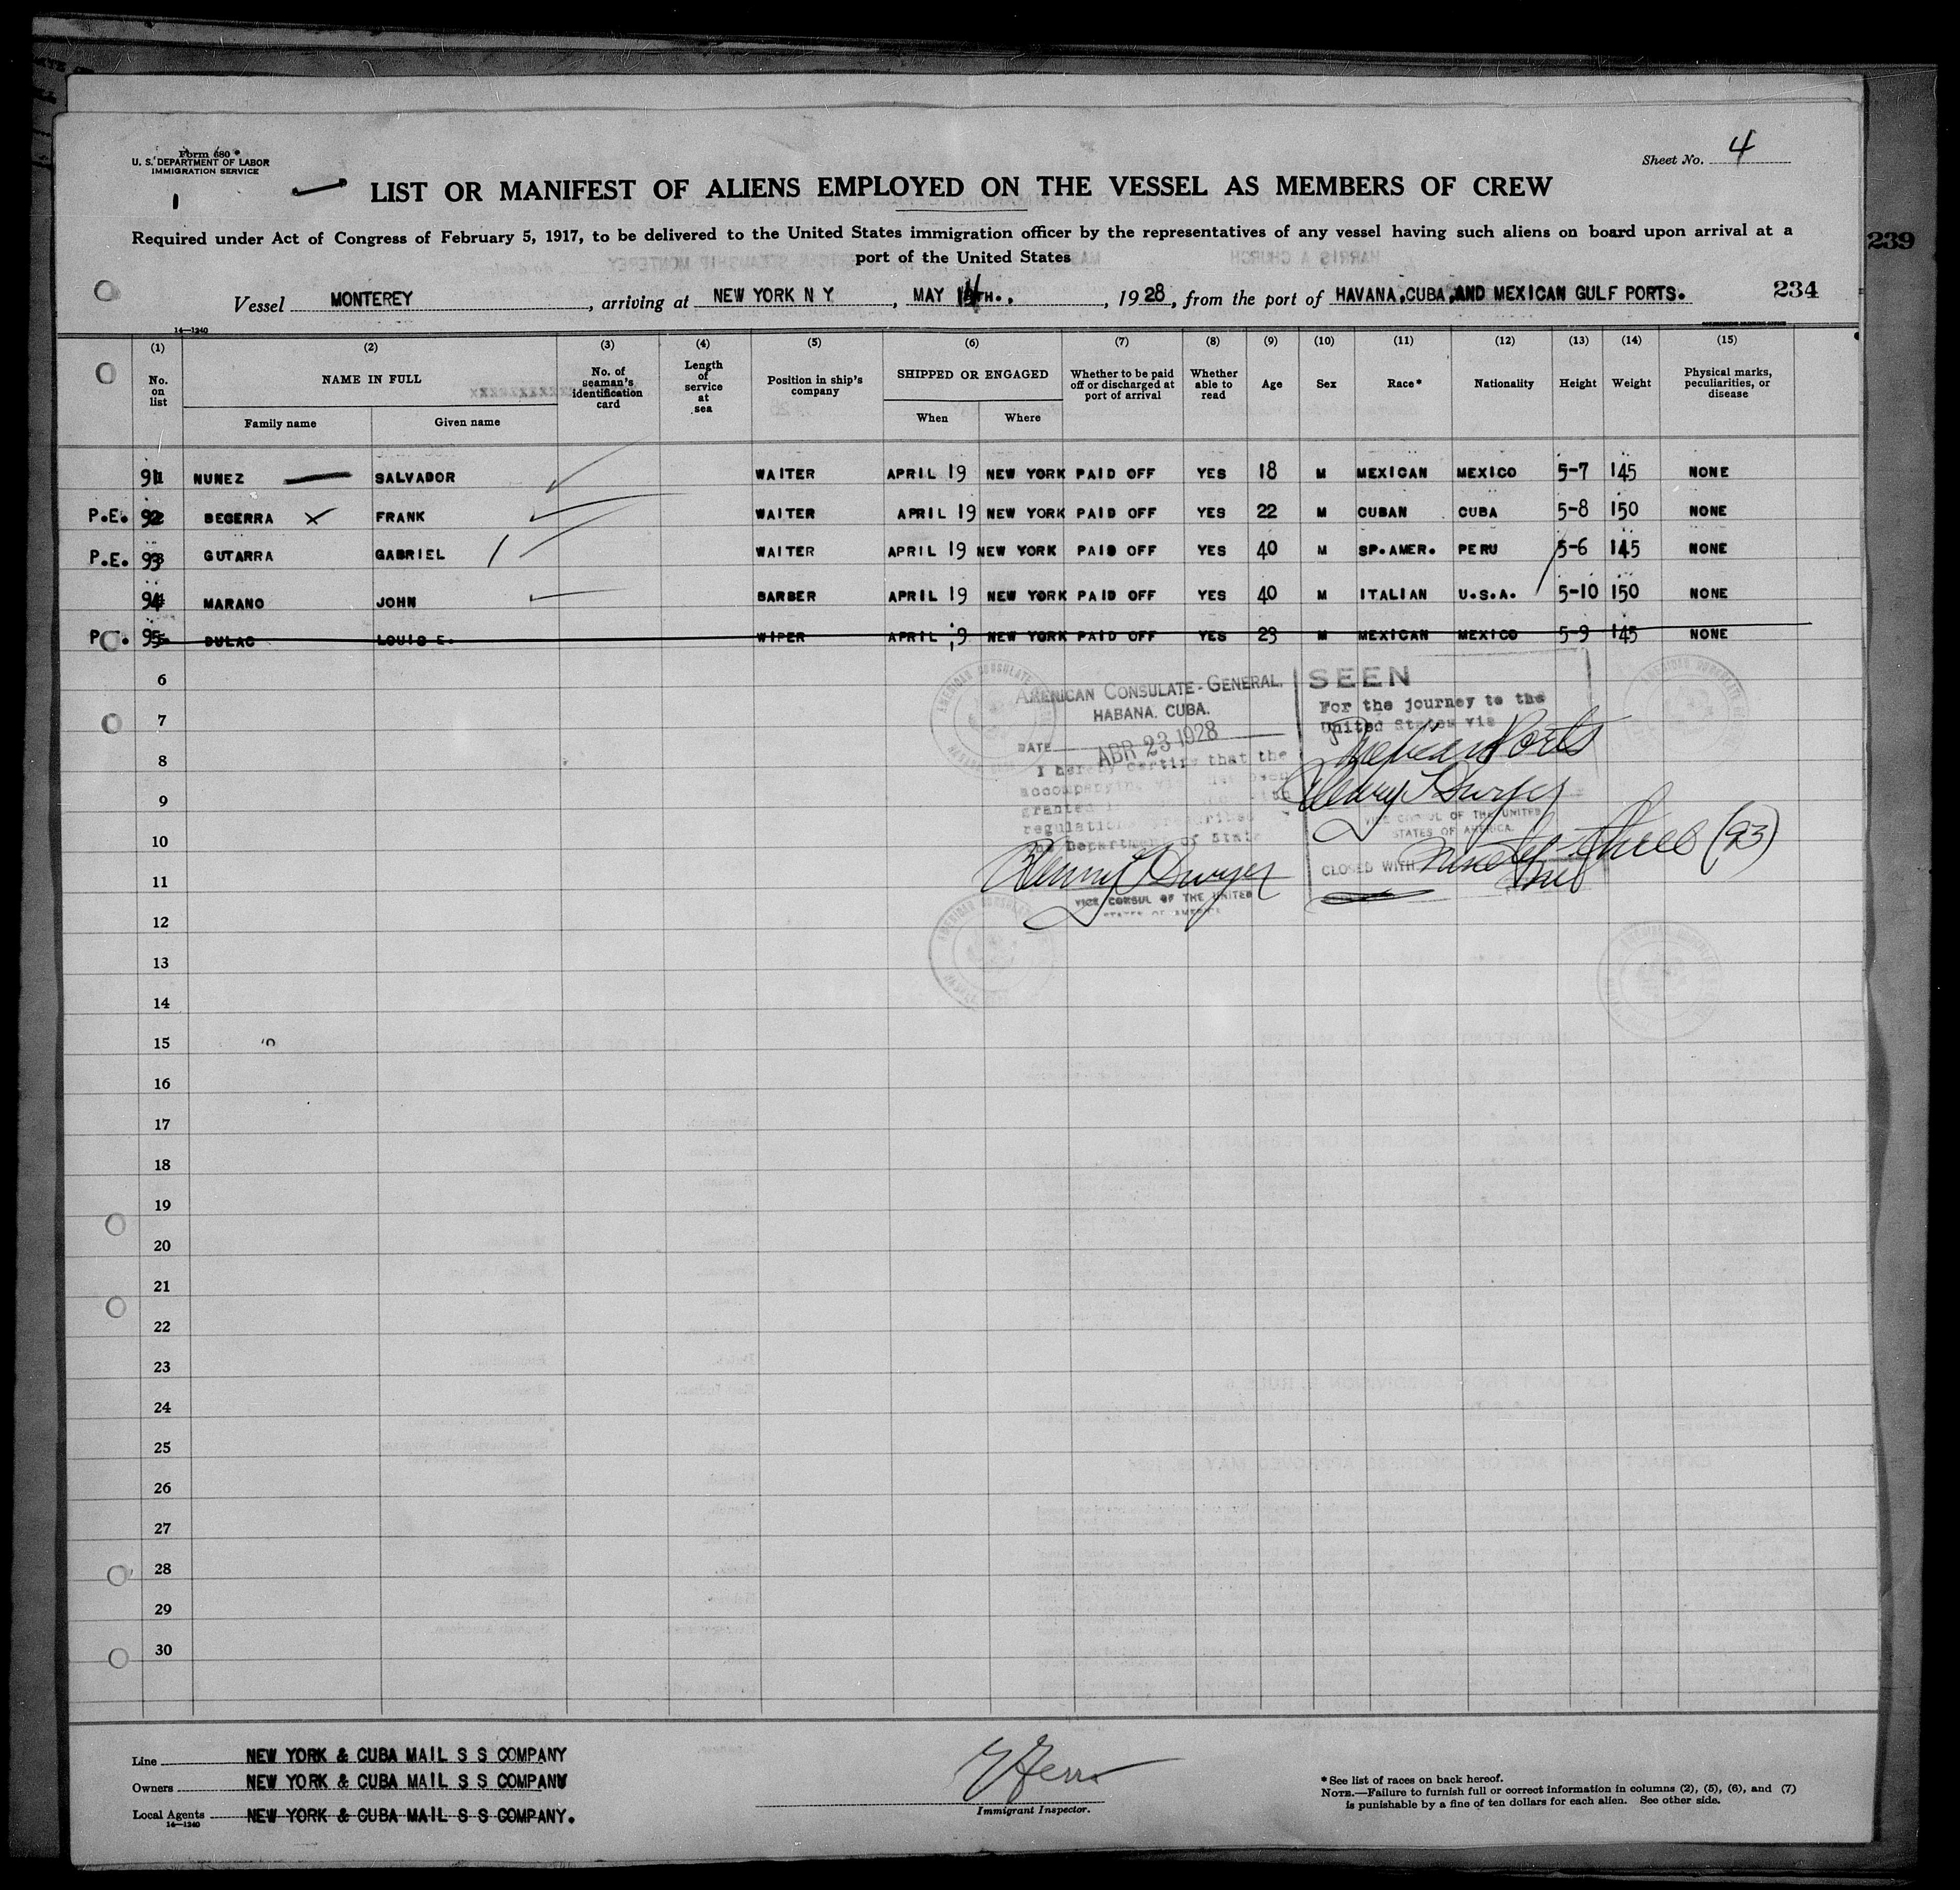 Form 680
U. S. DEPARTMENT OF LABOR
IMMIGRATION SERVICE
Sheet No. 4
LIST OR MANIFEST OF ALIENS EMPLOYED ON THE VESSEL AS MEMBERS OF CREW
Required under Act of Congress of February 5, 1917, to be delivered to the United States immigration officer by the representatives of any vessel having such aliens on board upon arrival at a
port of the United States
239
Vessel MONTEREY, arriving at NEW YORK N Y, MAY 14TH., 1928, from the port of HAVANA, CUBA, AND MEXICAN GULF PORTS. 234
14—1240
(1) (2) (3) (4) (5) (6) (7) (8) (9) (10) (11) (12) (13) (14) (15)
No. on list NAME IN FULL No. of seaman's identification card Length of service at sea Position in ship's company SHIPPED OR ENGAGED Whether to be paid off or discharged at port of arrival Whether able to read Age Sex Race* Nationality Height Weight Physical marks, peculiarities, or disease
Family name Given name When Where
91 NUNEZ SALVADOR WAITER APRIL 19 NEW YORK PAID OFF YES 18 M MEXICAN MEXICO 5-7 145 NONE
P.E. 92 BECERRA X FRANK WAITER APRIL 19 NEW YORK PAID OFF YES 22 M CUBAN CUBA 5-8 150 NONE
P.E. 93 GUTARRA GABRIEL WAITER APRIL 19 NEW YORK PAID OFF YES 40 M SP.AMER. PERU 5-6 145 NONE
94 MARANO JOHN BARBER APRIL 19 NEW YORK PAID OFF YES 40 M ITALIAN U.S.A. 5-10 150 NONE
95 DULAC LOUIS E. WIPER APRIL 19 NEW YORK PAID OFF YES 23 M MEXICAN MEXICO 5-9 145 NONE
6
7
8
9
10
11
12
13
14
15
16
17
18
19
20
21
22
23
24
25
26
27
28
29
30
AMERICAN CONSULATE-GENERAL,
HABANA, CUBA.
DATE ABR 23 1928
I hereby certify that the
accompanying
granted
regulations prescribed
Department of State
Henry T Dwyer
VICE CONSUL OF THE UNITED
STATES OF AMERICA
SEEN
For the journey to the
United States via
Mexican Ports
Henry T Dwyer
VICE CONSUL OF THE UNITED
STATES OF AMERICA.
CLOSED WITH Ninety-three (93)
Line NEW YORK & CUBA MAIL S S COMPANY
Owners NEW YORK & CUBA MAIL S S COMPANY
Local Agents NEW YORK & CUBA MAIL S S COMPANY.
14—1240
Immigrant Inspector.
*See list of races on back hereof.
NOTE.—Failure to furnish full or correct information in columns (2), (5), (6), and (7)
is punishable by a fine of ten dollars for each alien. See other side.